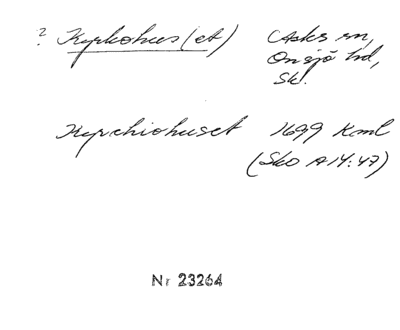 ? Kyrkohus(et) Asks sn,
Onsjö hd,
Sk.
Kyrchiohuset 1699 Kml
(Sko A14:47)
Nr 23264